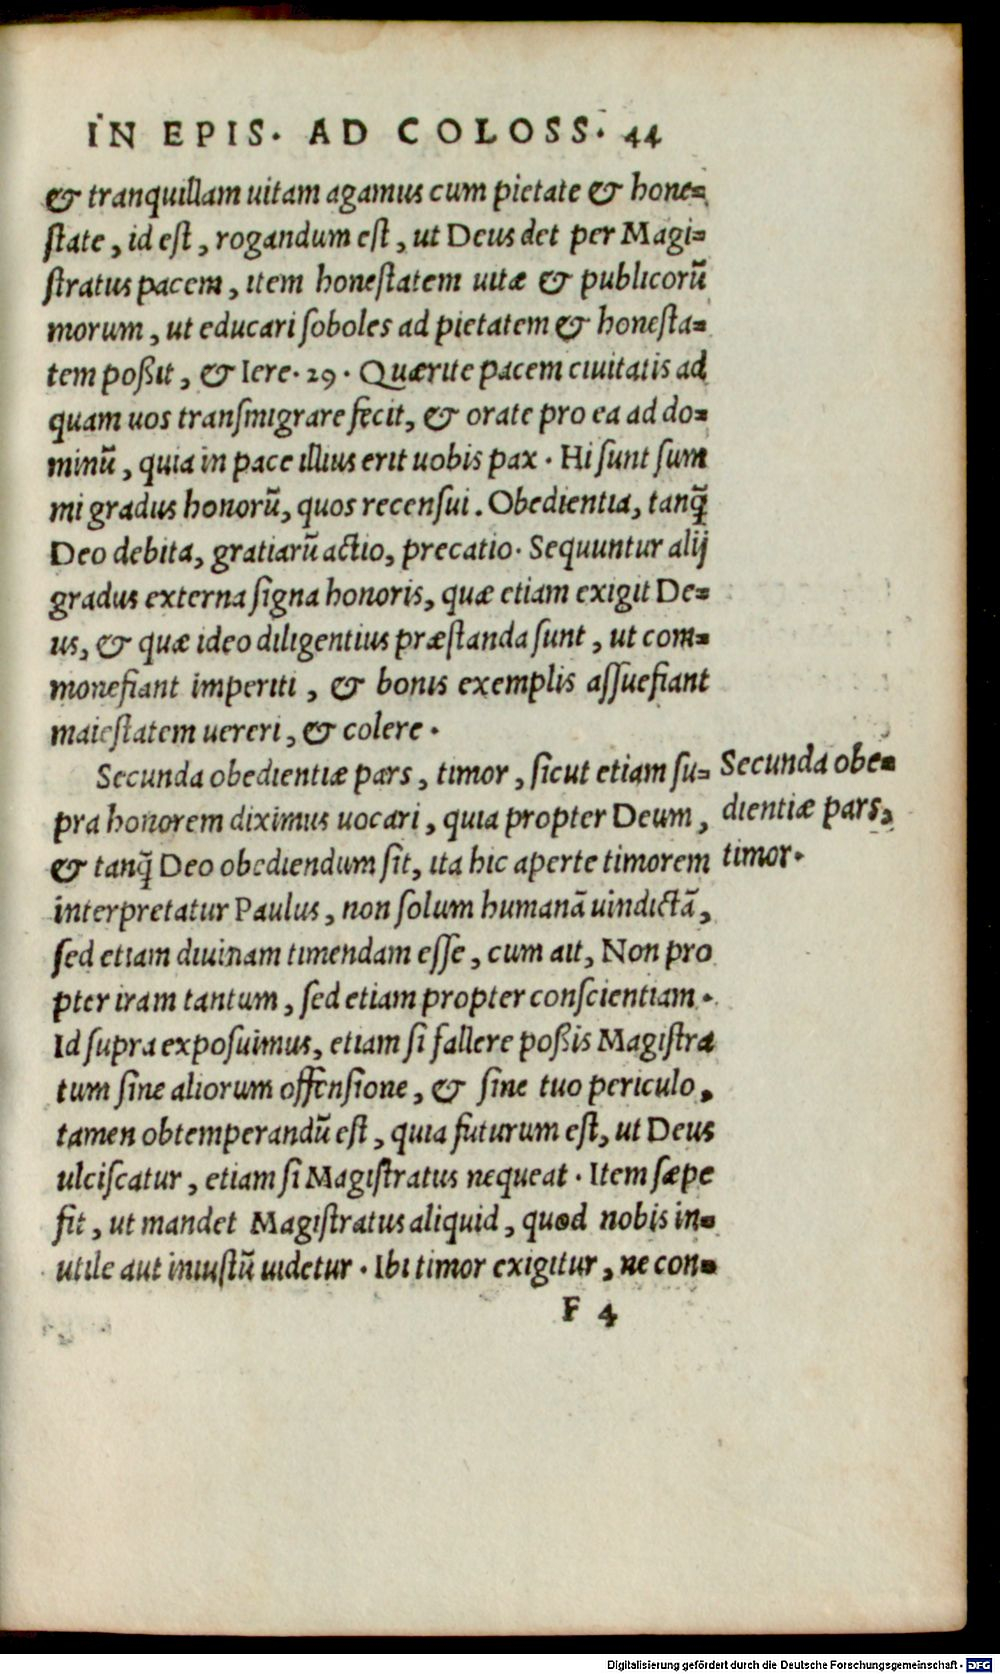 IN EPIS. AD COLOSS. 44
& tranquillam uitam agamus cum pietate & hone=
ſtate, id eſt, rogandum eſt, ut Deus det per Magi=
ſtratus pacem, item honeſtatem uitæ & publicorū
morum, ut educari ſoboles ad pietatem & honeſta=
tem poßit, & Iere. 29. Quærite pacem ciuitatis ad
quam uos tranſmigrare fecit, & orate pro ea ad do=
minū, quia in pace illius erit uobis pax. Hi ſunt ſum
mi gradus honorū, quos recenſui. Obedientia, tanq̃
Deo debita, gratiarū actio, precatio. Sequuntur alij
gradus externa ſigna honoris, quæ etiam exigit De=
us, & quæ ideo diligentius præſtanda ſunt, ut com=
monefiant imperiti, & bonis exemplis aſſuefiant
maieſtatem uereri, & colere.
Secunda obedientiæ pars, timor, ſicut etiam ſu=
pra honorem diximus uocari, quia propter Deum,
& tanq̃ Deo obediendum ſit, ita hic aperte timorem
interpretatur Paulus, non ſolum humanā uindictā,
ſed etiam diuinam timendam eſſe, cum ait, Non pro
pter iram tantum, ſed etiam propter conſcientiam.
Id ſupra expoſuimus, etiam ſi fallere poßis Magiſtra
tum ſine aliorum offenſione, & ſine tuo periculo,
tamen obtemperandū eſt, quia futurum eſt, ut Deus
ulciſcatur, etiam ſi Magiſtratus nequeat. Item ſæpe
fit, ut mandet Magiſtratus aliquid, quod nobis in=
utile aut iniuſtū uidetur. Ibi timor exigitur, ne con=
F 4
Secunda obe=
dientiæ pars,
timor.
Digitalisierung gefördert durch die Deutsche Forschungsgemeinschaft - DFG